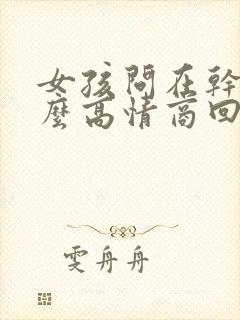 女孩問在幹
麼高情商回
雯舟舟